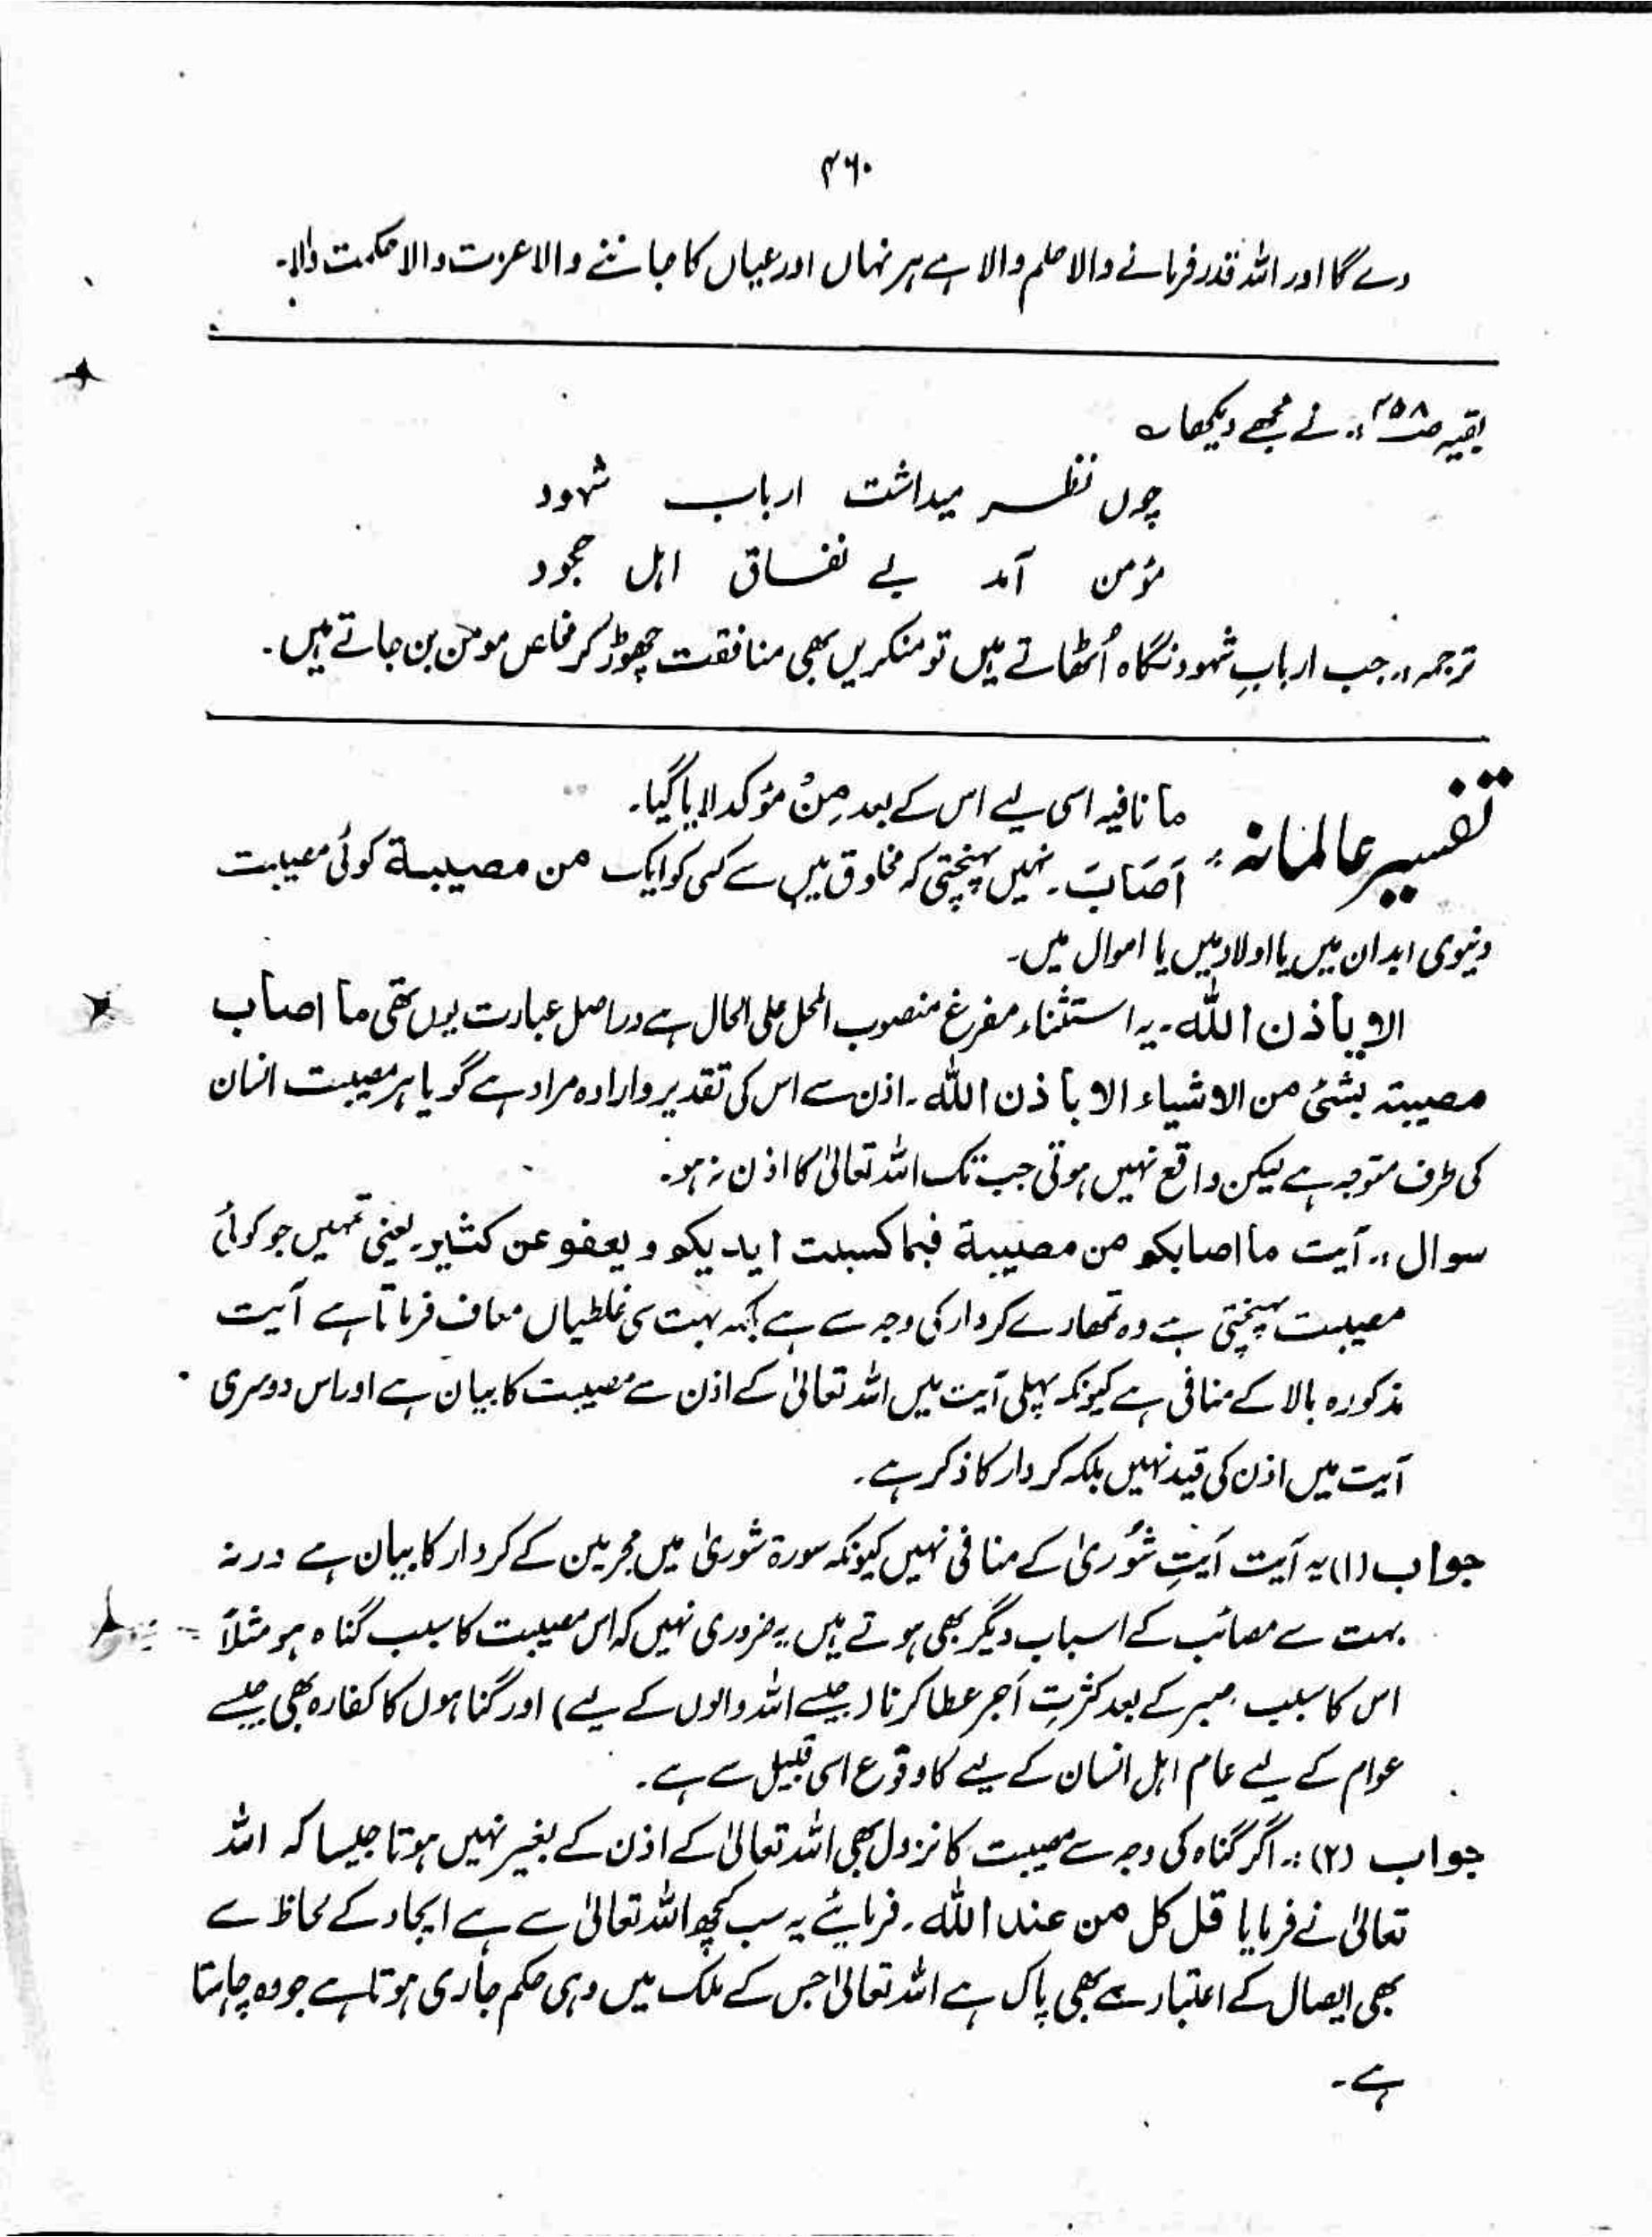 ۴۶۰
دے گا اور اللہ قدر فرمانے والا حلم والا ہے ہر نہاں اور عیاں کا جاننے والا عزت والا حکمت والا۔
بقیہ صفحہ ۴۵۸:۔ نے مجھے دیکھا ؎
چوں نظر میداشت ارباب شہود
مؤمن آمد بے نفاق اہل حجود
ترجمہ:۔ جب اربابِ شہود نگاہ اُٹھاتے ہیں تو منکریں بھی منافقت چھوڑ کر مخلص مومن بن جاتے ہیں۔
تفسیر عالمانہ:۔ ما نافیہ اسی لیے اس کے بعد مِنْ مؤکد لایا گیا۔
اَصَابَ۔ نہیں پہنچتی کہ مخلوق میں سے کسی کو ایک من مصیبة کوئی مصیبت
دنیوی ابدان میں یا اولاد میں یا اموال میں۔
الا باذن اللہ۔ یہ استثناء مفرغ منصوب المحل علی الحال ہے دراصل عبارت یوں تھی ما اصاب
مصیبتہ بشئ من الاشیاء الا باذن اللہ۔ اذن سے اس کی تقدیر و ارادہ مراد ہے گویا ہر مصیبت انسان
کی طرف متوجہ ہے لیکن واقع نہیں ہوتی جب تک اللہ تعالیٰ کا اذن نہ ہو۔
سوال:۔ آیت ما اصابکم من مصیبة فبما کسبت ایدیکم و یعفو عن کثیر۔ یعنی تمہیں جو کوئی
مصیبت پہنچتی ہے وہ تمہارے کردار کی وجہ سے ہے بلکہ بہت سی غلطیاں معاف فرماتا ہے آیت
مذکورہ بالا کے منافی ہے کیونکہ پہلی آیت میں اللہ تعالیٰ کے اذن سے مصیبت کا بیان ہے اور اس دوسری
آیت میں اذن کی قید نہیں بلکہ کردار کا ذکر ہے۔
جواب (۱) یہ آیت آیتِ شُوریٰ کے منافی نہیں کیونکہ سورۃ شوریٰ میں مجرمین کے کردار کا بیان ہے ورنہ
بہت سے مصائب کے اسباب دیگر بھی ہوتے ہیں یہ ضروری نہیں کہ اس مصیبت کا سبب گناہ ہو مثلاً
اس کا سبب صبر کے بعد کثرتِ اَجر عطا کرنا (جیسے اللہ والوں کے لیے) اور گناہوں کا کفارہ بھی جیسے
عوام کے لیے عام اہل انسان کے لیے کا وقوع اسی قبیل سے ہے۔
جواب (۲):۔ اگر گناہ کی وجہ سے مصیبت کا نزول بھی اللہ تعالیٰ کے اذن کے بغیر نہیں ہوتا جیسا کہ اللہ
تعالیٰ نے فرمایا قل کل من عند اللہ۔ فرمایئے یہ سب کچھ اللہ تعالیٰ سے ہے ایجاد کے لحاظ سے
بھی ایصال کے اعتبار سے بھی پاک ہے اللہ تعالیٰ جس کے ملک میں وہی حکم جاری ہوتا ہے جو وہ چاہتا
ہے۔